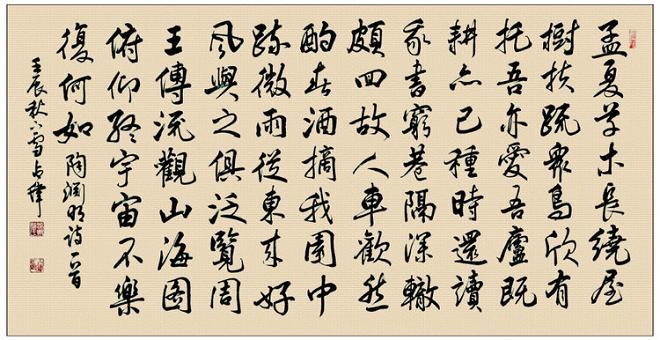 孟夏草木長繞屋
樹扶疏眾鳥欣有
托吾亦愛吾廬既
耕亦已種時還讀
我書窮巷隔深轍
頗回故人車歡然
酌春酒摘我園中
蔬微雨從東來好
風與之俱泛覽周
王傳流觀山海图
俯仰終宇宙不樂
復何如 陶淵明詩一首
壬辰秋小雪占